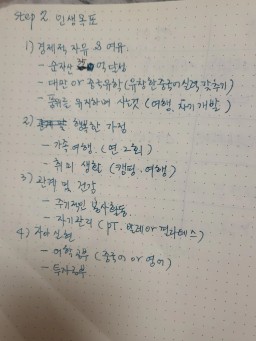 step 2 인생목표
1) 경제적 자유 & 여유
- 순자산 억 달성
- 대만 or 중국유학 (유창한 중국어실력 갖추기)
- 를 유지하며 사는것 (여행, 자기개발)
2) 행복한 가정
- 가족여행 (연 2회)
- 취미 생활 (캠핑, 여행)
3) 관계 및 건강
- 주기적인 봉사활동
- 자기관리 (PT, 발레 or 필라테스)
4) 자아실현
- 어학공부 (중국어 or 영어)
- 투자공부